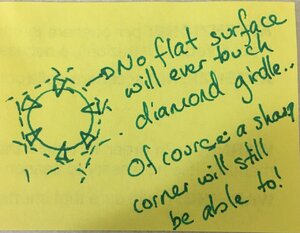 No flat surface
will ever touch
diamond girdle..
Of course a sharp
corner will still
be able to!